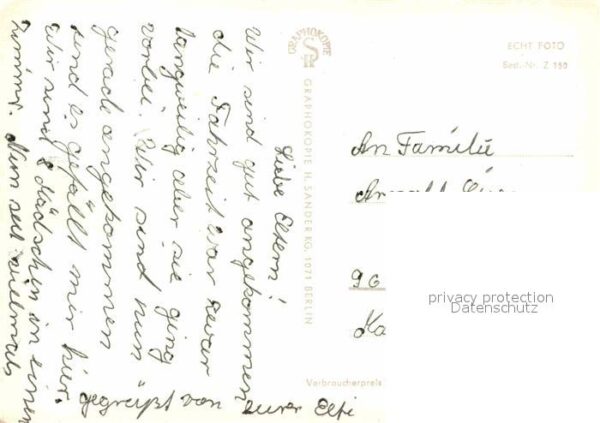 Liebe Eltern!
Wir sind gut angekommen
die Fahrzeit war zwar
langweilig aber sie ging
vorbei. Wir sind nun
gerade angekommen
und es gefällt mir hier.
Wir sind 8 Mädchen in einem
Zimmer. Nun seit vielmals
gegrüßt von eurer Elfi
GRAPHOKOPIE
GRAPHOKOPIE H. SANDER KG, 1071 BERLIN
ECHT FOTO
Best.-Nr. Z 150
An Familie
90
Ka
privacy protection
Datenschutz
Verbraucherpreis